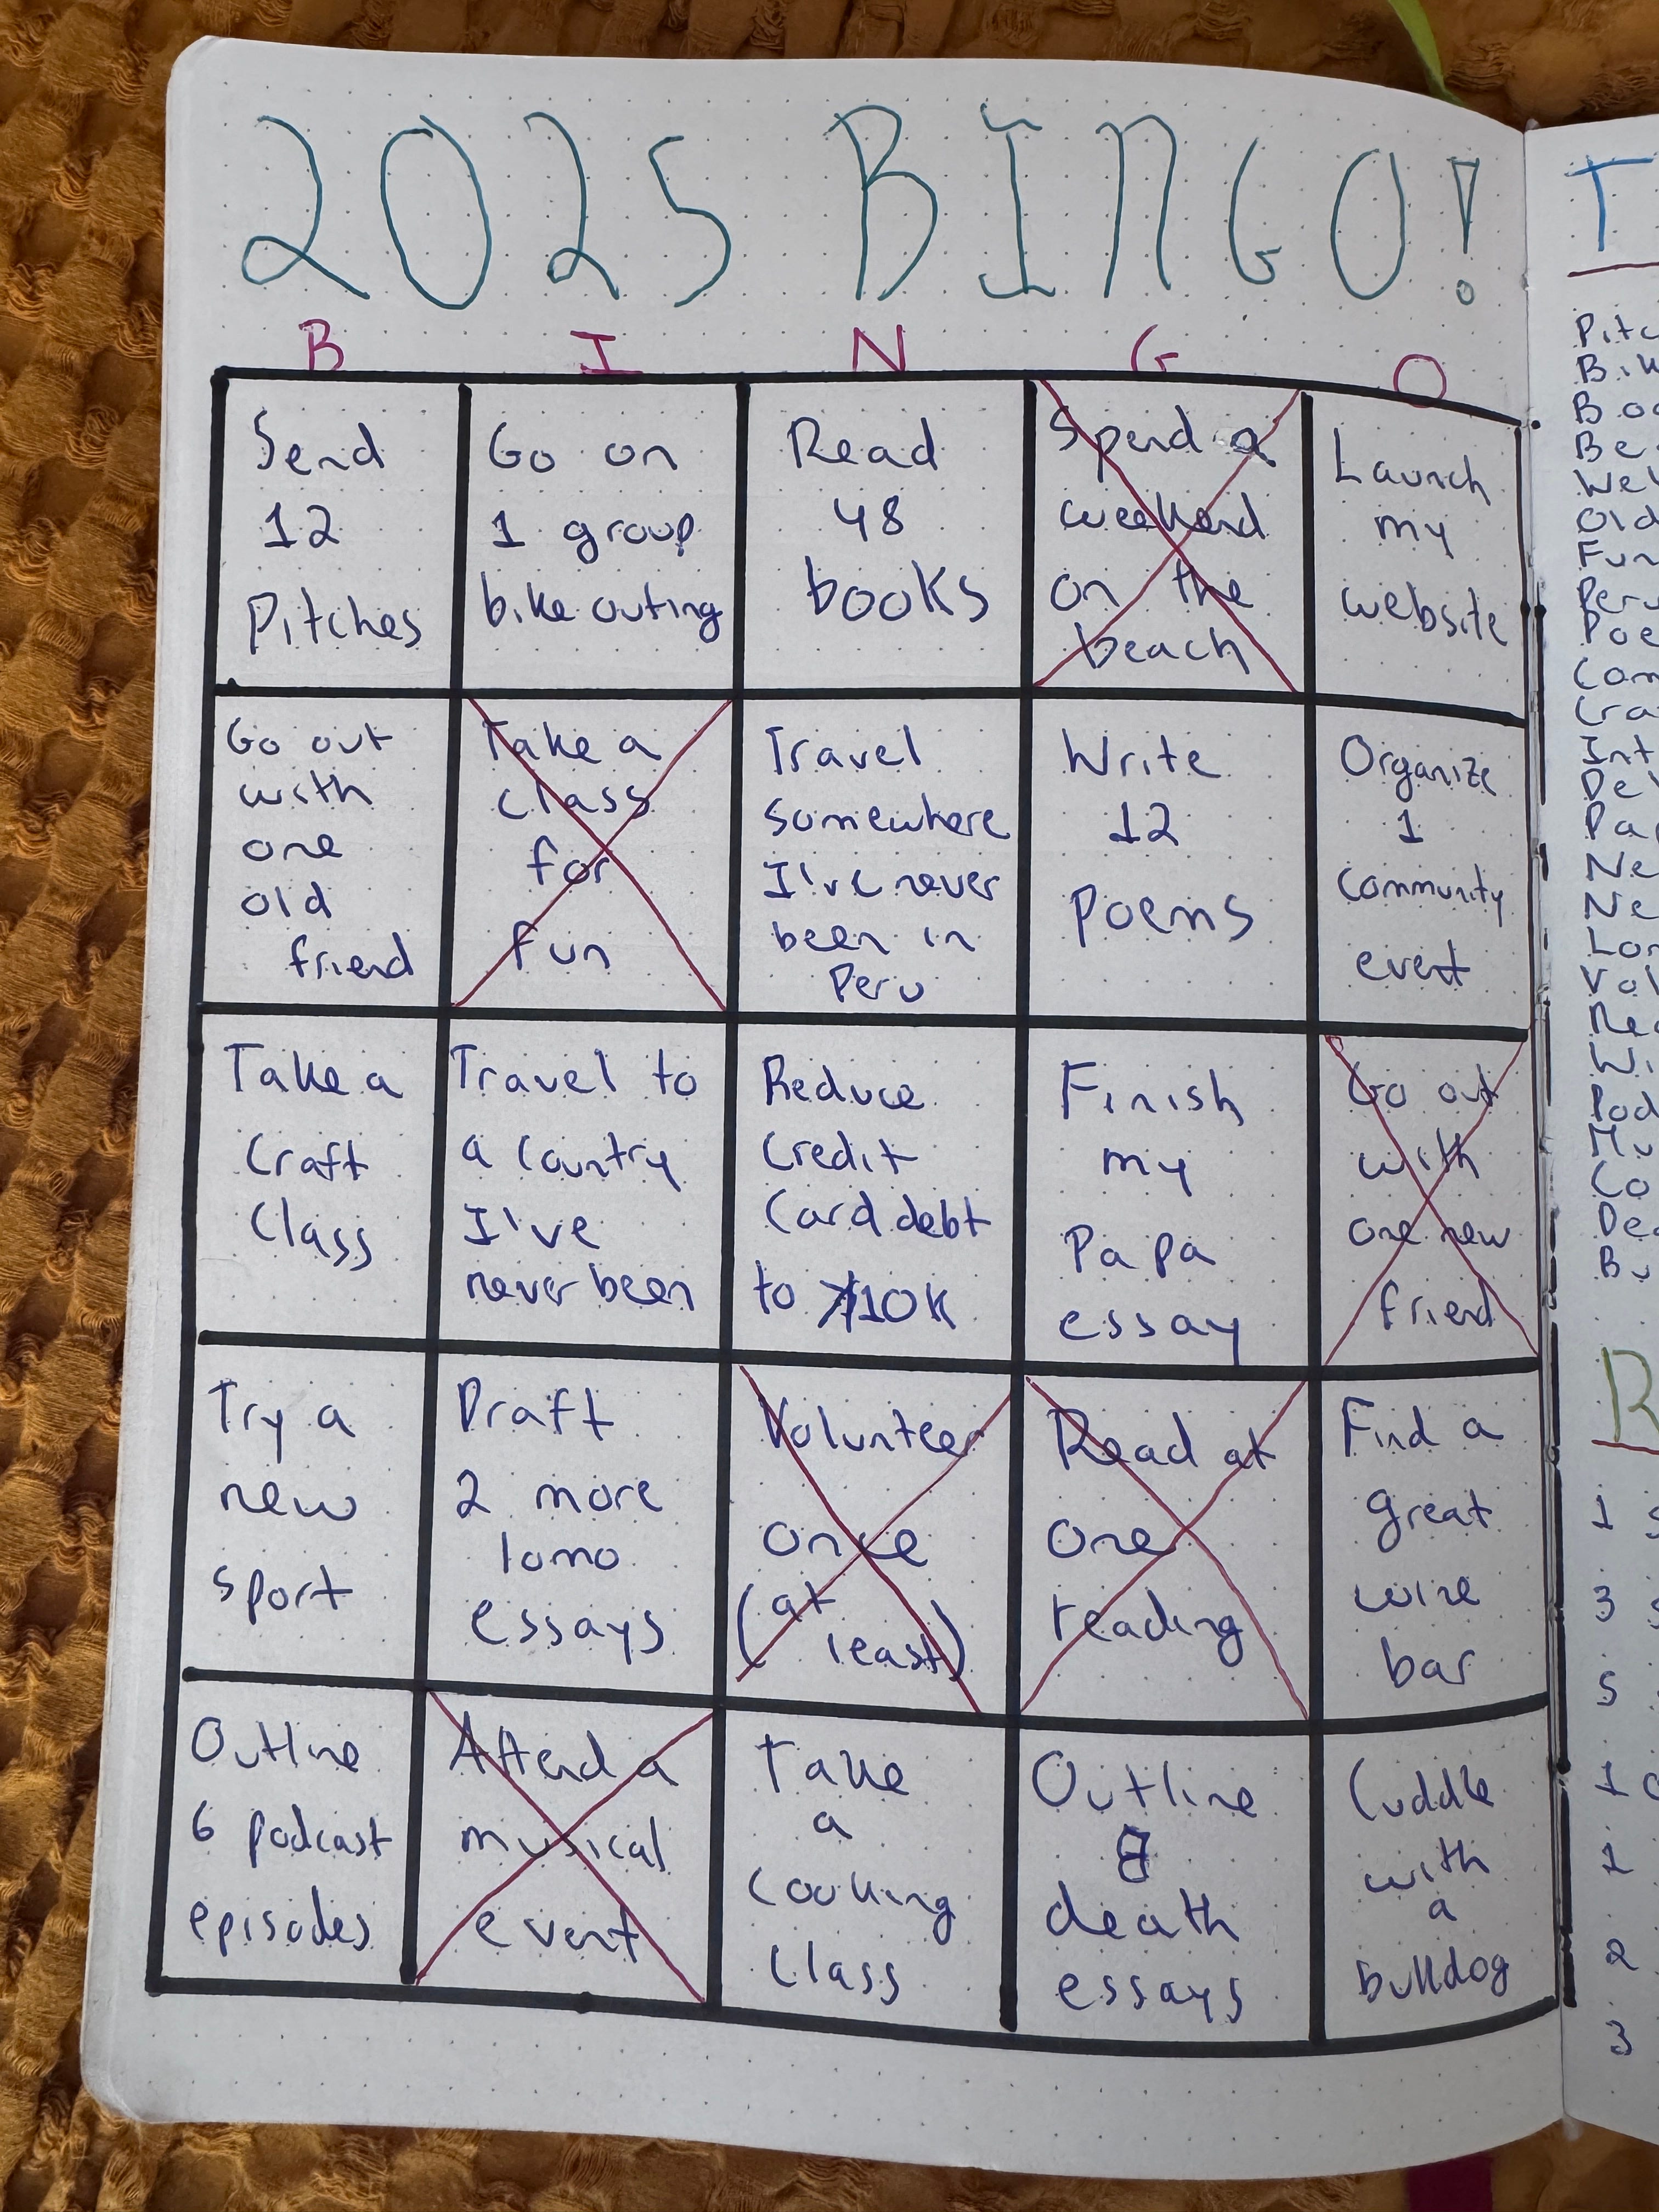 2025 BINGO!
B I N G O
Send
12
Pitches
Go on
1 group
bike outing
Read
48
books
Spend a
weekend
on the
beach
Launch
my
website
Go out
with
one
old
friend
Take a
class
for
fun
Travel
somewhere
I've never
been in
Peru
Write
12
Poems
Organize
1
community
event
Take a
Craft
Class
Travel to
a country
I've
never been
Reduce
Credit
Card debt
to 10K
Finish
my
Papa
essay
Go out
with
one new
friend
Try a
new
sport
Draft
2 more
lomo
essays
Volunteer
once
(at
least)
Read at
one
reading
Find a
great
wine
bar
Outline
6 podcast
episodes
Attend a
musical
event
Take
a
cooking
class
Outline
8
death
essays
Cuddle
with
a
bulldog
1
3
5
1
1
2
3